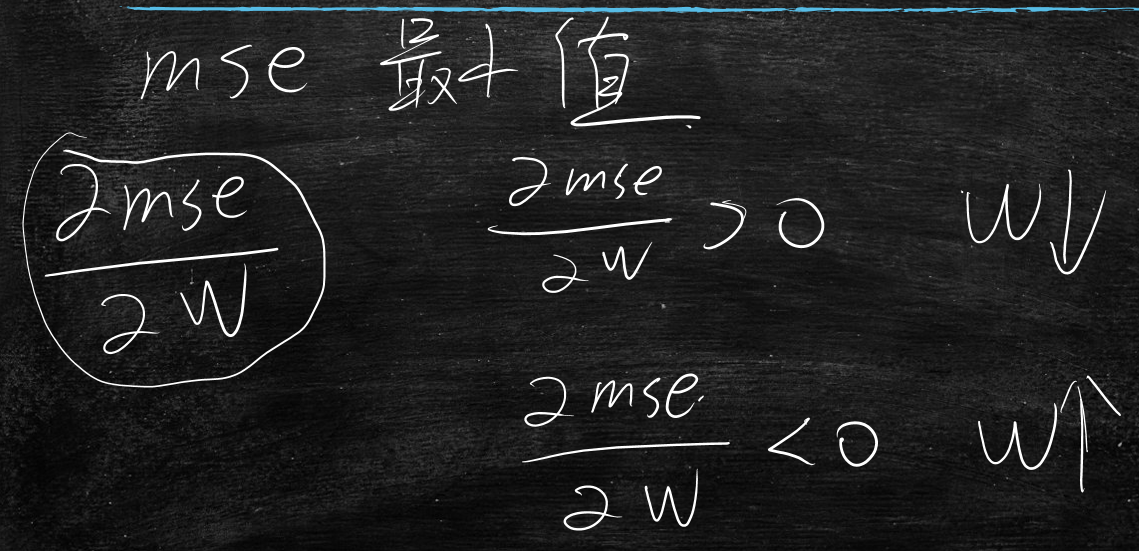 mse 最小值
∂mse/∂w ∂mse/∂w > 0 w↓
∂mse/∂w < 0 w↑